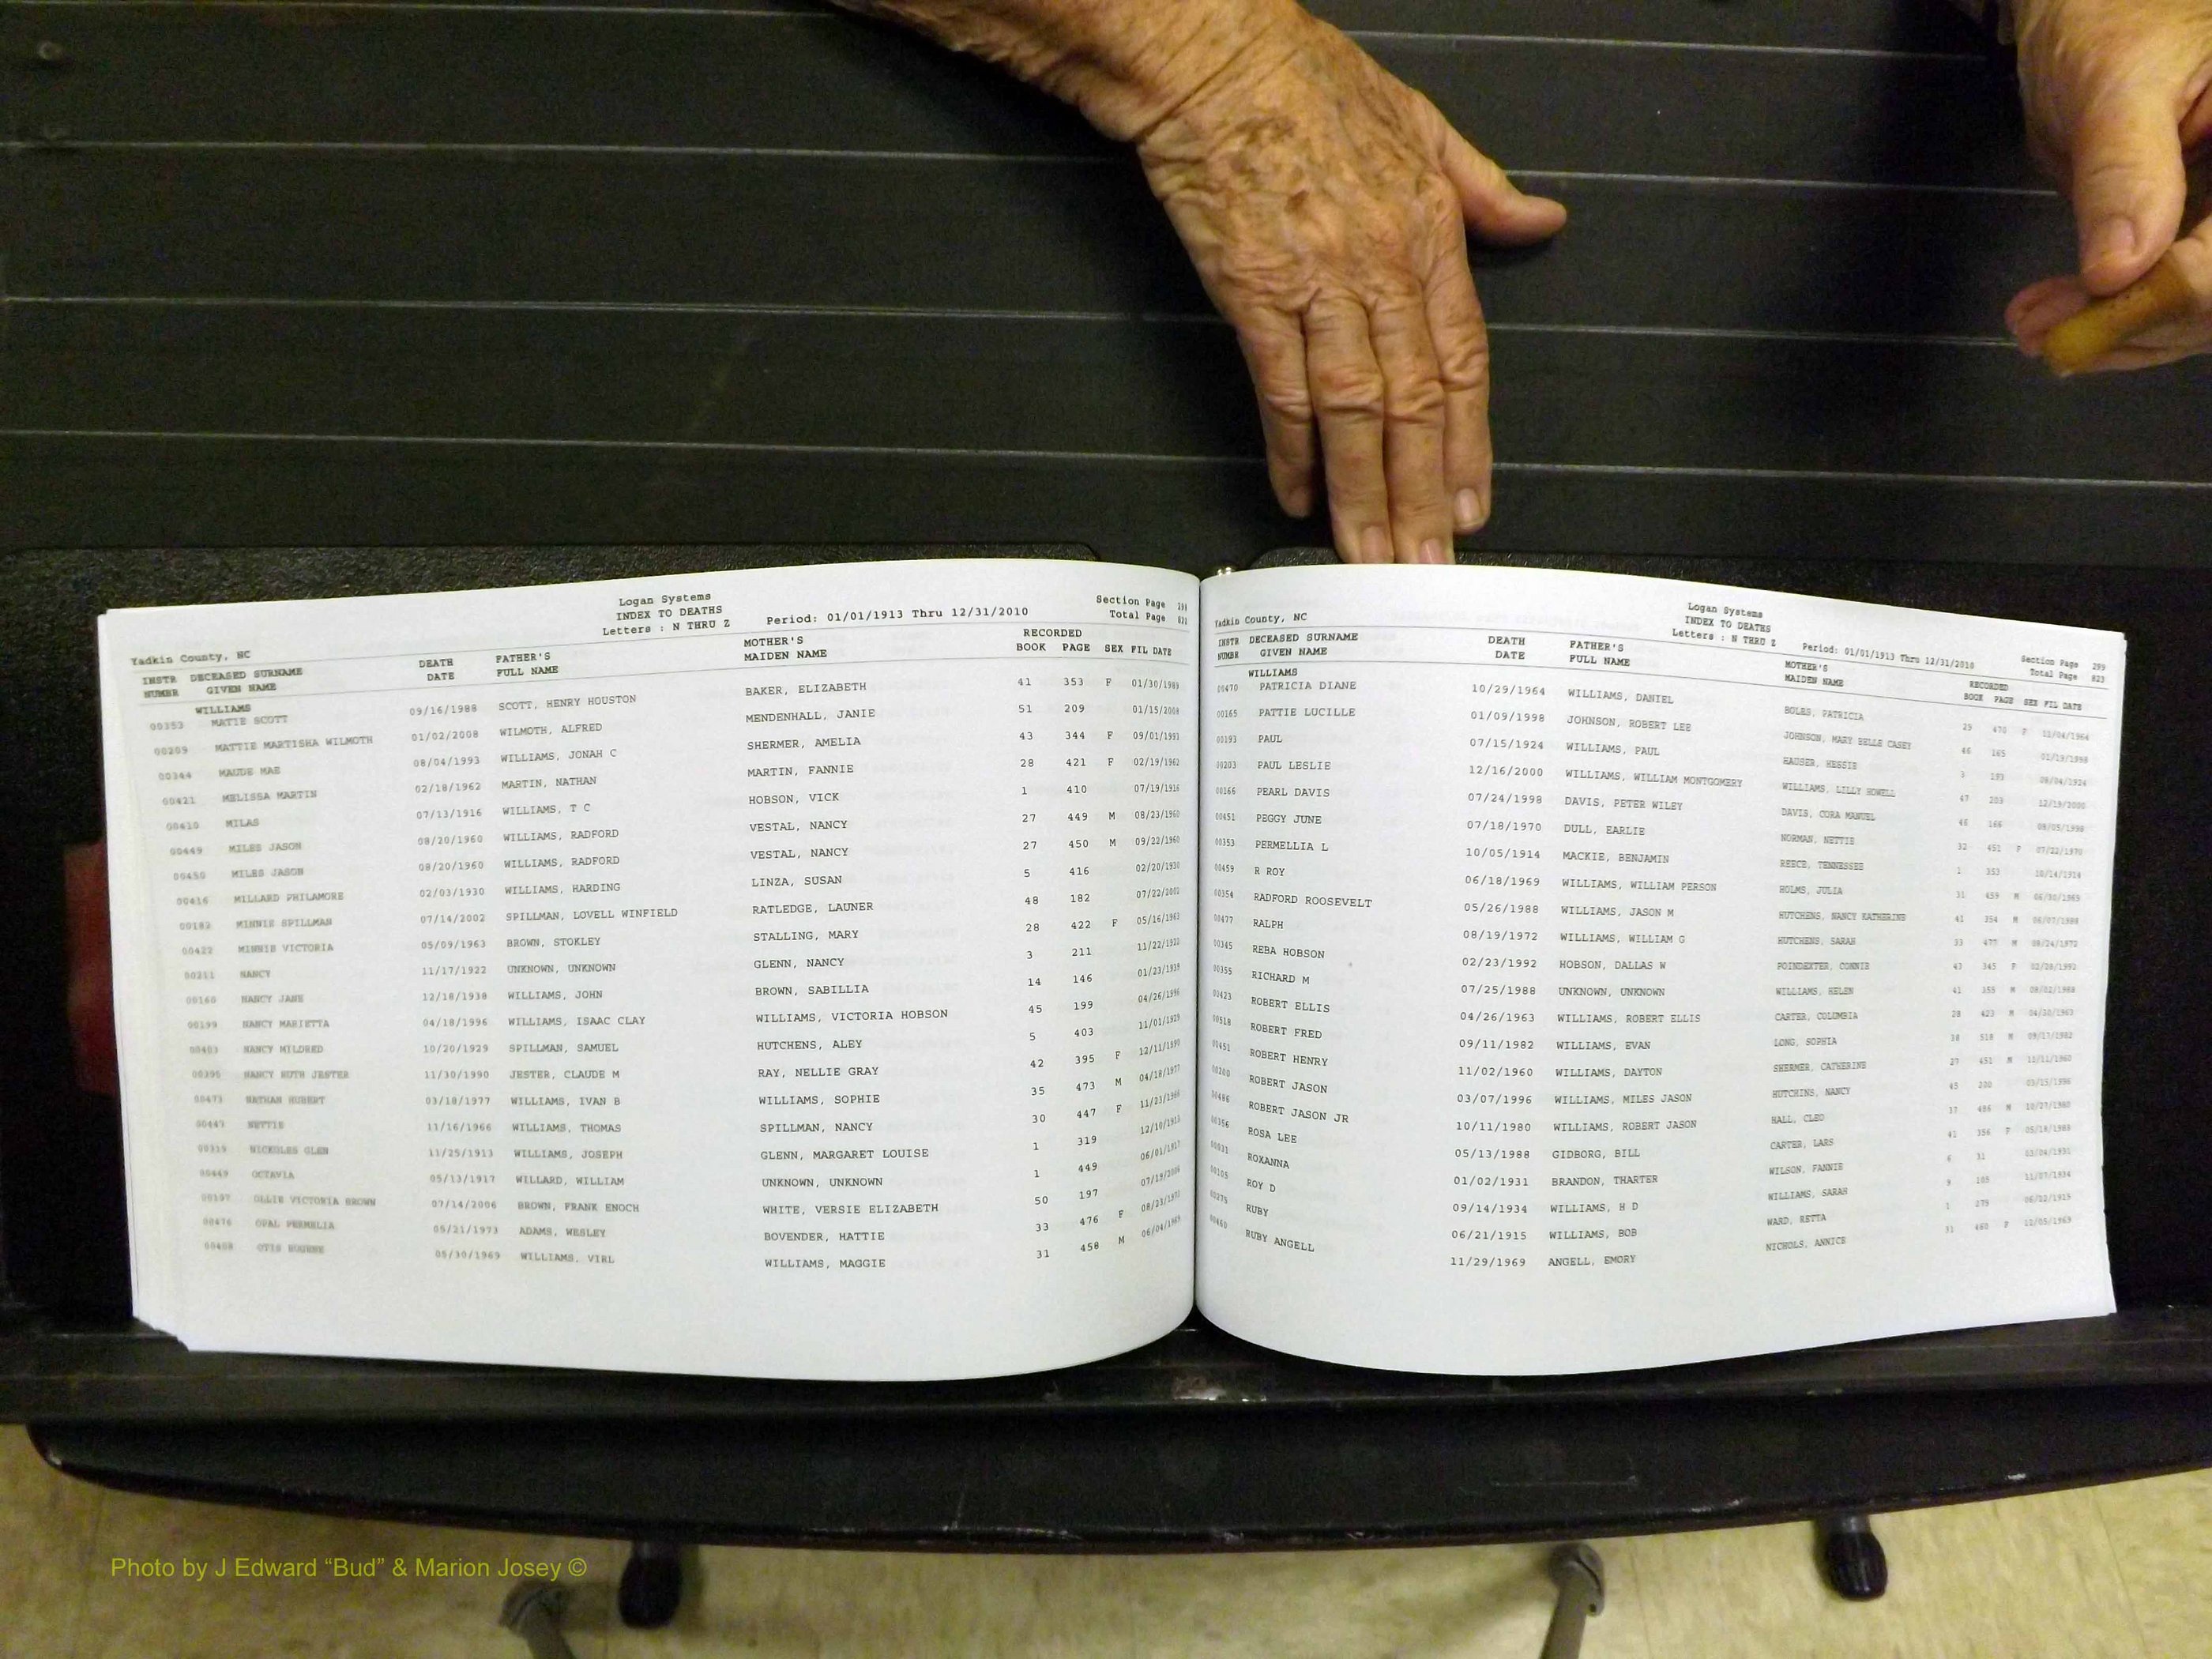 Logan Systems
INDEX TO DEATHS
Letters : N THRU Z
Period: 01/01/1913 Thru 12/31/2010
Section Page
Total Page
Yadkin County, NC
INSTR NUMBR DECEASED SURNAME GIVEN NAME DEATH DATE FATHER'S FULL NAME MOTHER'S MAIDEN NAME RECORDED BOOK PAGE SEX FIL DATE
WILLIAMS
00353 MATIE SCOTT 09/16/1988 SCOTT, HENRY HOUSTON BAKER, ELIZABETH 41 353 F 01/30/1989
00209 MATTIE MARTISHA WILMOTH 01/02/2008 WILMOTH, ALFRED MENDENHALL, JANIE 51 209 01/15/2008
00344 MAUDE MAE 08/04/1993 WILLIAMS, JONAH C SHERMER, AMELIA 43 344 F 09/01/1993
00421 MELISSA MARTIN 02/18/1962 MARTIN, NATHAN MARTIN, FANNIE 28 421 F 02/19/1962
00410 MILAS 07/13/1916 WILLIAMS, T C HOBSON, VICK 1 410 07/19/1916
00449 MILES JASON 08/20/1960 WILLIAMS, RADFORD VESTAL, NANCY 27 449 M 08/23/1960
00450 MILES JASON 08/20/1960 WILLIAMS, RADFORD VESTAL, NANCY 27 450 M 09/22/1960
00416 MILLARD PHILAMORE 02/03/1930 WILLIAMS, HARDING LINZA, SUSAN 5 416 02/20/1930
00182 MINNIE SPILLMAN 07/14/2002 SPILLMAN, LOVELL WINFIELD RATLEDGE, LAUNER 48 182 07/22/2002
00422 MINNIE VICTORIA 05/09/1963 BROWN, STOKLEY STALLING, MARY 28 422 F 05/16/1963
00211 NANCY 11/17/1922 UNKNOWN, UNKNOWN GLENN, NANCY 3 211 11/22/1922
00146 NANCY JANE 12/18/1938 WILLIAMS, JOHN BROWN, SABILLIA 14 146 01/23/1939
00199 NANCY MARIETTA 04/18/1996 WILLIAMS, ISAAC CLAY WILLIAMS, VICTORIA HOBSON 45 199 04/26/1996
00403 NANCY MILDRED 10/20/1929 SPILLMAN, SAMUEL HUTCHENS, ALEY 5 403 11/01/1929
00395 NANCY RUTH JESTER 11/30/1990 JESTER, CLAUDE M RAY, NELLIE GRAY 42 395 F 12/11/1990
00473 NATHAN HUBERT 03/18/1977 WILLIAMS, IVAN B WILLIAMS, SOPHIE 35 473 M 04/18/1977
00447 NETTIE 11/16/1966 WILLIAMS, THOMAS SPILLMAN, NANCY 30 447 F 11/23/1966
00319 NICKOLES GLEN 11/25/1913 WILLIAMS, JOSEPH GLENN, MARGARET LOUISE 1 319 12/10/1913
00449 OCTAVIA 05/13/1917 WILLARD, WILLIAM UNKNOWN, UNKNOWN 1 449 06/01/1917
00197 OLLIE VICTORIA BROWN 07/14/2006 BROWN, FRANK ENOCH WHITE, VERSIE ELIZABETH 50 197 07/19/2006
00476 OPAL PERMELIA 05/21/1973 ADAMS, WESLEY BOVENDER, HATTIE 33 476 F 08/23/1973
00458 OTIS EUGENE 05/30/1969 WILLIAMS, VIRL WILLIAMS, MAGGIE 31 458 M 06/04/1969
Yadkin County, NC
Logan Systems
INDEX TO DEATHS
Letters : N THRU Z
Period: 01/01/1913 Thru 12/31/2010
Section Page 299
Total Page 823
INSTR NUMBR DECEASED SURNAME GIVEN NAME DEATH DATE FATHER'S FULL NAME MOTHER'S MAIDEN NAME RECORDED BOOK PAGE SEX FIL DATE
WILLIAMS
00470 PATRICIA DIANE 10/29/1964 WILLIAMS, DANIEL BOLES, PATRICIA 29 470 F 11/04/1964
00165 PATTIE LUCILLE 01/09/1998 JOHNSON, ROBERT LEE JOHNSON, MARY BELLE CASEY 46 165 01/19/1998
00193 PAUL 07/15/1924 WILLIAMS, PAUL HAUSER, HESSIE 3 193 08/04/1924
00203 PAUL LESLIE 12/16/2000 WILLIAMS, WILLIAM MONTGOMERY WILLIAMS, LILLY HOWELL 47 203 12/19/2000
00166 PEARL DAVIS 07/24/1998 DAVIS, PETER WILEY DAVIS, CORA MANUEL 46 166 08/05/1998
00451 PEGGY JUNE 07/18/1970 DULL, EARLIE NORMAN, NETTIE 32 451 F 07/22/1970
00353 PERMELLIA L 10/05/1914 MACKIE, BENJAMIN REECE, TENNESSEE 1 353 10/14/1914
00459 R ROY 06/18/1969 WILLIAMS, WILLIAM PERSON HOLMS, JULIA 31 459 M 06/30/1969
00354 RADFORD ROOSEVELT 05/26/1988 WILLIAMS, JASON M HUTCHENS, NANCY KATHERINE 41 354 M 06/07/1988
00477 RALPH 08/19/1972 WILLIAMS, WILLIAM G HUTCHENS, SARAH 33 477 M 08/24/1972
00345 REBA HOBSON 02/23/1992 HOBSON, DALLAS W POINDEXTER, CONNIE 43 345 F 02/28/1992
00355 RICHARD M 07/25/1988 UNKNOWN, UNKNOWN WILLIAMS, HELEN 41 355 M 08/02/1988
00423 ROBERT ELLIS 04/26/1963 WILLIAMS, ROBERT ELLIS CARTER, COLUMBIA 28 423 M 04/30/1963
00518 ROBERT FRED 09/11/1982 WILLIAMS, EVAN LONG, SOPHIA 38 518 M 09/17/1982
00451 ROBERT HENRY 11/02/1960 WILLIAMS, DAYTON SHERMER, CATHERINE 27 451 M 11/11/1960
00200 ROBERT JASON 03/07/1996 WILLIAMS, MILES JASON HUTCHINS, NANCY 45 200 03/15/1996
00486 ROBERT JASON JR 10/11/1980 WILLIAMS, ROBERT JASON HALL, CLEO 37 486 M 10/27/1980
00356 ROSA LEE 05/13/1988 GIDBORG, BILL CARTER, LARS 41 356 F 05/18/1988
00031 ROXANNA 01/02/1931 BRANDON, THARTER WILSON, FANNIE 6 31 03/04/1931
00105 ROY D 09/14/1934 WILLIAMS, H D WILLIAMS, SARAH 9 105 11/07/1934
00275 RUBY 06/21/1915 WILLIAMS, BOB WARD, RETTA 1 275 06/22/1915
00460 RUBY ANGELL 11/29/1969 ANGELL, EMORY NICHOLS, ANNICE 31 460 F 12/05/1969
Photo by J Edward “Bud” & Marion Josey ©